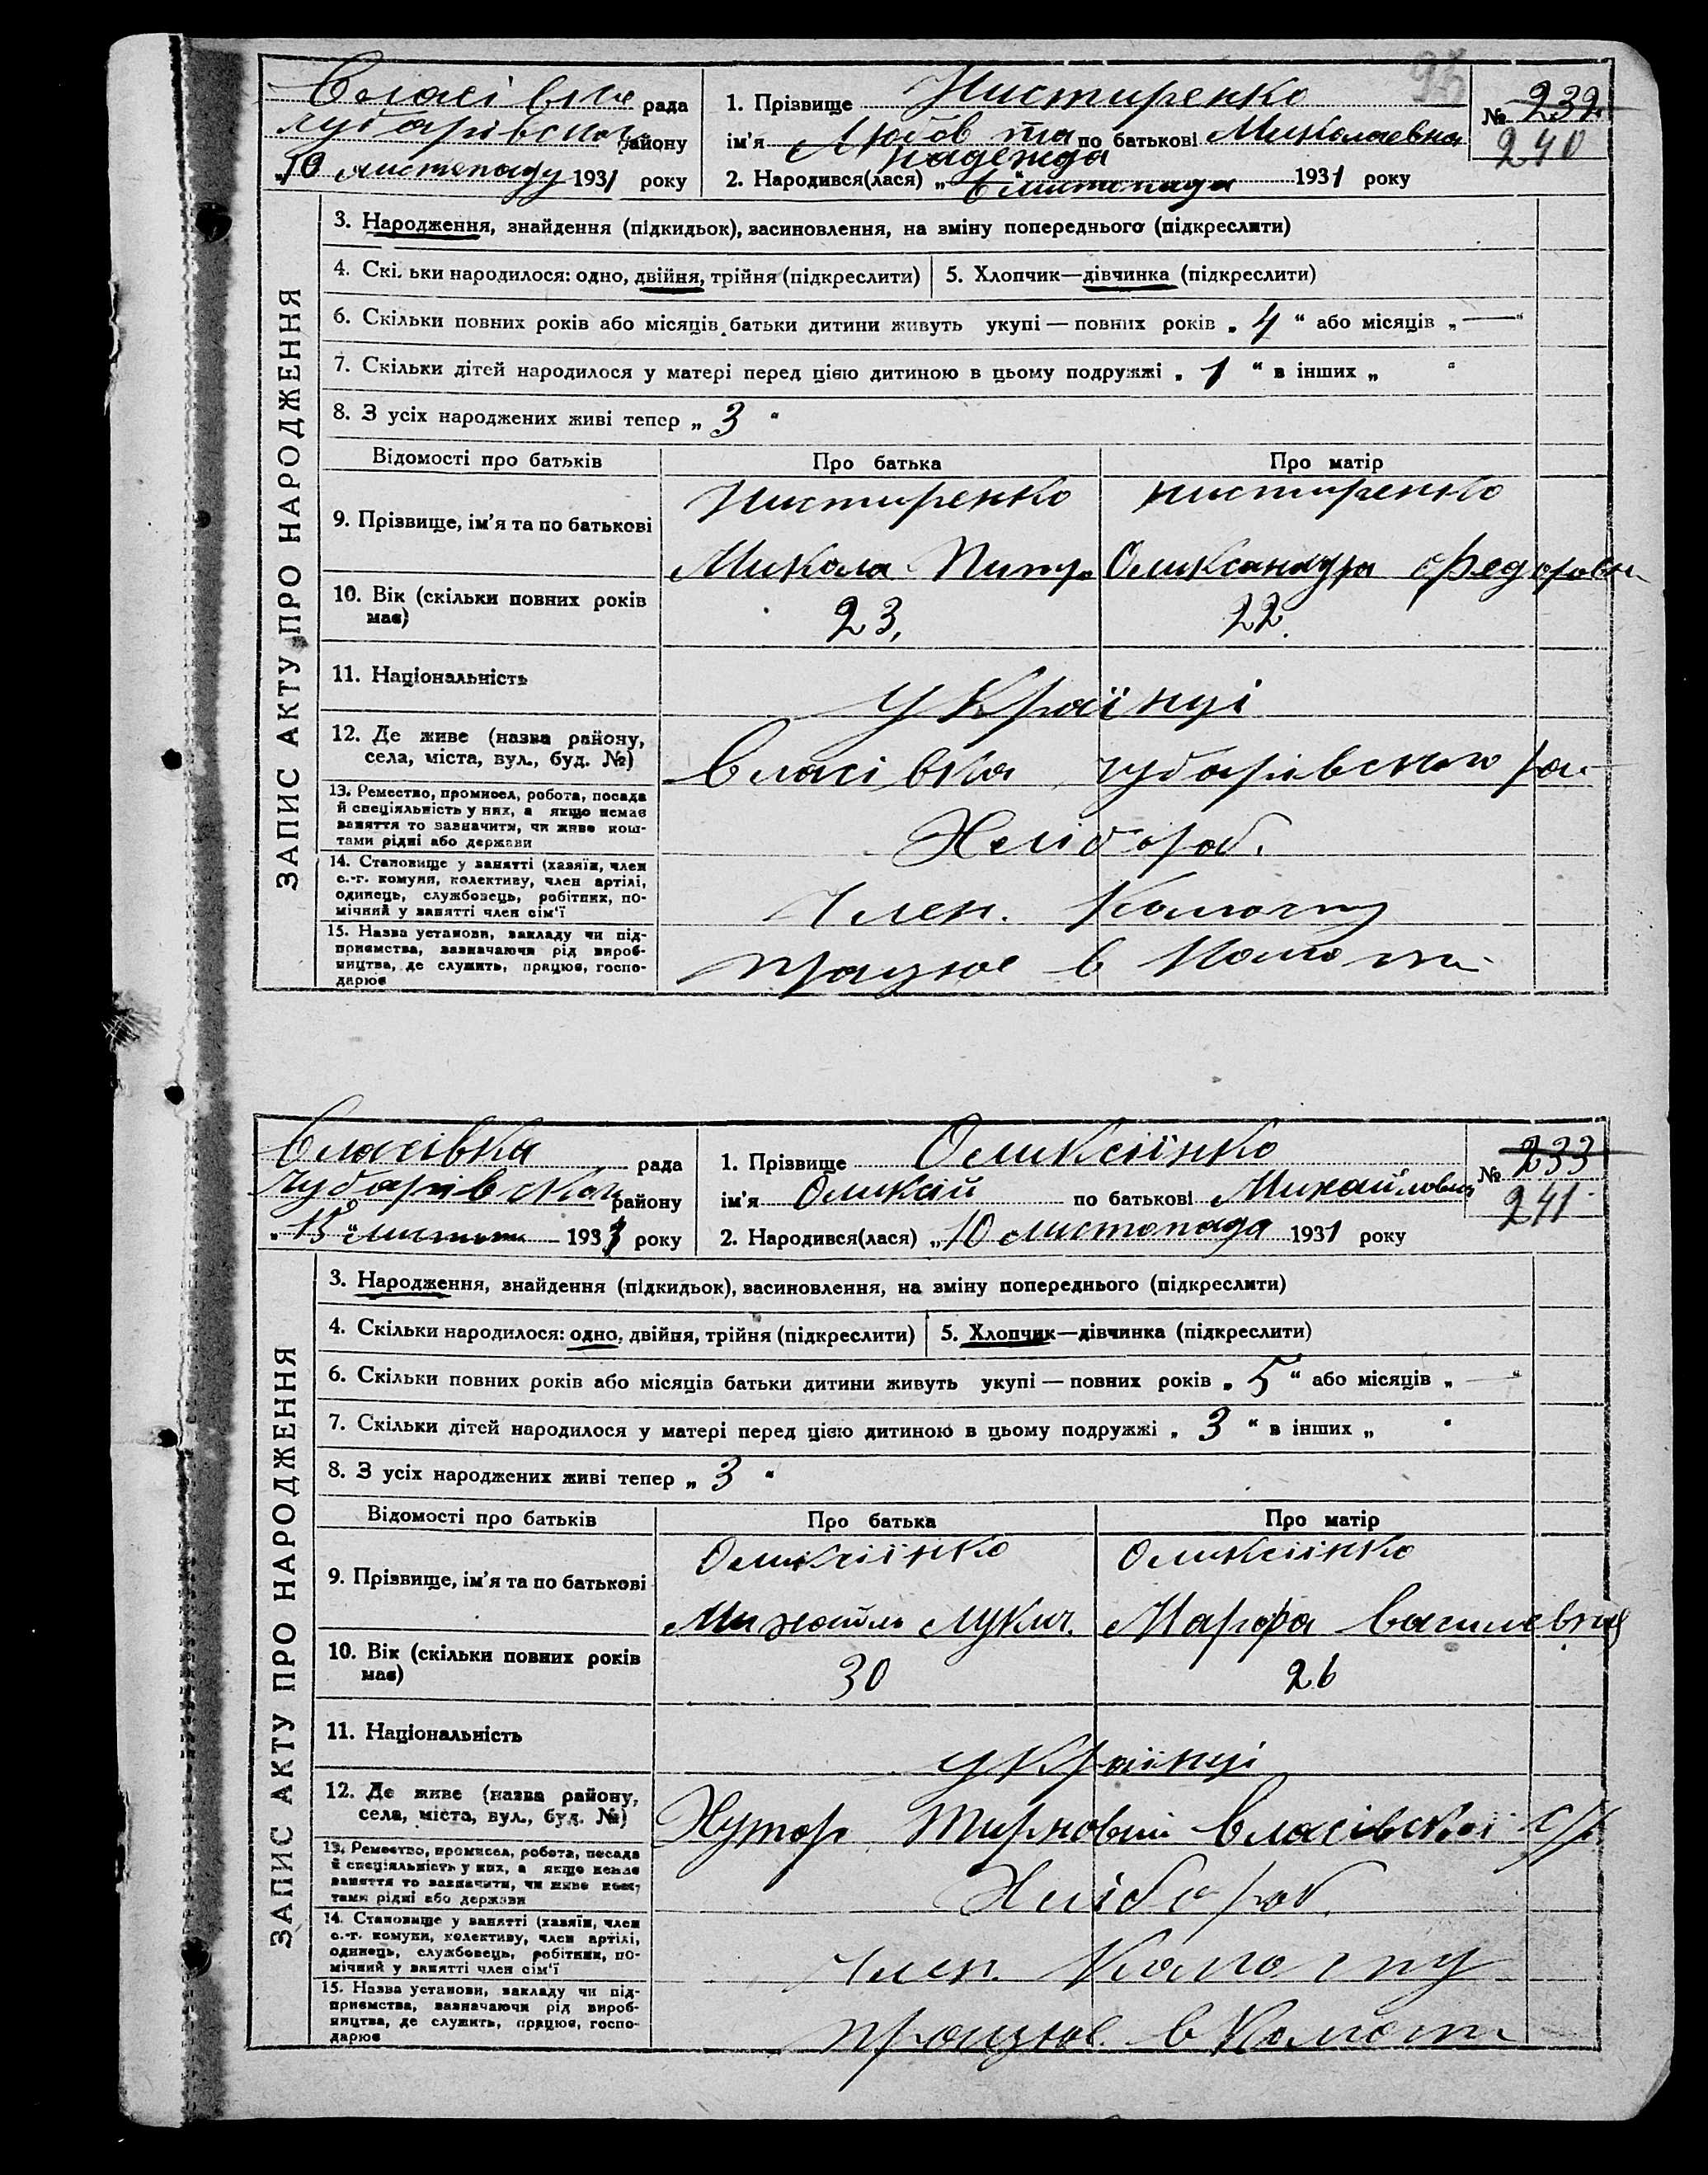 93
Власівка рада
Чубарівського району
„10 листопаду 1931 року
1. Прізвище Нистиренко
ім'я Любов та по батькові Миколаевна
надежда
2. Народився(лася) „6 листопада 1931 року
№ 232
240
ЗАПИС АКТУ ПРО НАРОДЖЕННЯ
3. Народження, знайдення (підкидьок), васиновлення, на зміну попереднього (підкреслити)
4. Скільки народилося: одно, двійня, трійня (підкреслити) 5. Хлопчик—дівчинка (підкреслити)
6. Скільки повних років або місяців батьки дитини живуть укупі — повних років „ 4 “ або місяців „ — “
7. Скільки дітей народилося у матері перед цією дитиною в цьому подружжі „ 1 “ в інших „ “
8. З усіх народжених живі тепер „ 3 “
Відомості про батьків Про батька Про матір
9. Прізвище, ім'я та по батькові
Нистиренко нистиренко
Микола Питр Олександра Федоровн
10. Вік (скільки повних років має)
23, 22.
11. Національність
українці
12. Де живе (назва району,
села, міста, вул., буд. №)
Власівка Чубарівського ра
13. Ремество, промисел, робота, посада
й спеціяльність у них, а якщо немає
заняття то зазначити, чи живе кош-
тами рідні або держави
Хлібороб.
14. Становище у занятті (хазяїн, член
с.-г. комуни, колективу, член артілі,
одинець, службовець, робітник, по-
мічний у занятті член сім'ї
Член. Колгоспу
15. Назва установи, закладу чи під-
приємства, зазначаючи рід вироб-
ництва, де служить, працює, госпо-
дарює
працює в Колгосп
Власівка рада
Чубарівського району
„15 листопа 1931 року
1. Прізвище Оликсіїнко
ім'я Оликсій по батькові Михайлович
2. Народився(лася) „10 листопада 1931 року
№ 233
241
ЗАПИС АКТУ ПРО НАРОДЖЕННЯ
3. Народження, знайдення (підкидьок), васиновлення, на зміну попереднього (підкреслити)
4. Скільки народилося: одно, двійня, трійня (підкреслити) 5. Хлопчик—дівчинка (підкреслити)
6. Скільки повних років або місяців батьки дитини живуть укупі — повних років „ 5 “ або місяців „ — “
7. Скільки дітей народилося у матері перед цією дитиною в цьому подружжі „ 3 “ в інших „ “
8. З усіх народжених живі тепер „ 3 “
Відомості про батьків Про батька Про матір
9. Прізвище, ім'я та по батькові
Оликсіїнко Оликсіїнко
Михайло Лукич. Марфа Василевна
10. Вік (скільки повних років
має)
30 26
11. Національність
українці
12. Де живе (назва району,
села, міста, вул., буд. №)
Хутор Тирновий Власівської с/р
13. Ремество, промисел, робота, посада
й спеціяльність у них, а якщо немає
заняття то зазначити, чи живе кош-
тами рідні або держави
Хлібороб.
14. Становище у занятті (хазяїн, член
с.-г. комуни, колективу, член артілі,
одинець, службовець, робітник, по-
мічний у занятті член сім'ї
Член. Колгоспу
15. Назва установи, закладу чи під-
приємства, зазначаючи рід вироб-
ництва, де служить, працює, госпо-
дарює
працює в Колгосп